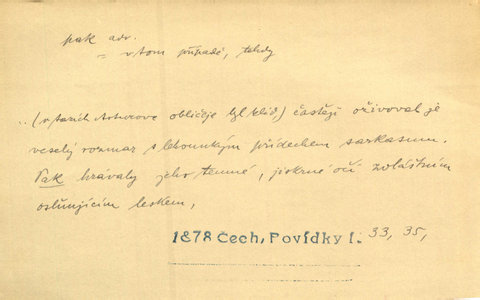 pak adv.
= v tom případě, tehdy
..(v tazích Arturove obličeje byl klid,) častěji oživoval je
veselý rozmar s lehounkým přídechem sarkasmu.
Pak hrávaly jeho temné, jiskrné oči zvláštním
oslňujícím leskem,
1878 Čech, Povídky I. 33, 35,